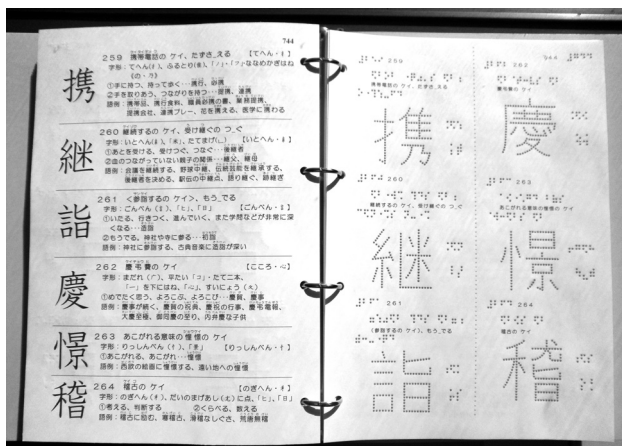 744
携
259 携帯電話の ケイ、たずさ_える 【てへん・扌】
字形：てへん(扌)、ふるとり(隹)、「ノ」・「フ」ななめかぎはね
(乃・乃)
①手に持つ、持って歩く…携行、必携
②手を取りあう、つながりを持つ…提携、連携
語例：携帯品、携行食料、職員必携の書、業務提携、
提携会社、連携プレー、花を携える、医学に携わる
継
260 継続するの ケイ、受け継ぐの つ_ぐ
字形：いとへん(糸)、「米」、たてまげ(乚) 【いとへん・糸】
①あとを受ける、受けつぐ、つなぐ…後継者
②血のつながっていない親子の関係…継父、継母
語例：会議を継続する、野球中継、伝統芸能を継承する、
後継者を決める、駅伝の中継点、語り継ぐ、跡継ぎ
詣
261 〈参詣するの ケイ〉、もう_でる
字形：ごんべん(言)、「ヒ」、「日」 【ごんべん・言】
①いたる、行きつく、進んでいく、また学問などが非常に深
くなる…造詣
②もうでる。神社や寺に参る…初詣
語例：神社に参詣する、古典音楽に造詣が深い
慶
262 慶弔費の ケイ 【こころ・心】
字形：まだれ(广)、平たい「コ」、たて二本、
「一」を下にはね、「心」、すいにょう(夂)
①めでたく思う、よろこぶ、よろこび…慶賀、慶事
語例：慶事が続く、慶賀の祝典、慶祝の行事、慶弔電報、
大慶至極、御同慶の至り、内弁慶な子供
憬
263 あこがれる意味の 憧憬の ケイ
字形：りっしんべん(忄)、「景」 【りっしんべん・忄】
①あこがれる、あこがれ…憧憬
語例：西欧の絵画に憧憬する、遠い地への憧憬
稽
264 稽古の ケイ 【のぎへん・禾】
字形：のぎへん(禾)、だいのまげあし(尢)に点、「ヒ」、「日」
①考える、判断する ②くらべる、数える
語例：稽古に励む、寒稽古、滑稽なしぐさ、荒唐無稽
259
携帯電話の ケイ、たずさ_える
携
260
継続するの ケイ、受け継ぐの つ_ぐ
継
261
〈参詣するの ケイ〉、もう_でる
詣
744
262
慶弔費の ケイ
慶
263
あこがれる意味の憧憬の ケイ
憬
264
稽古の ケイ
稽